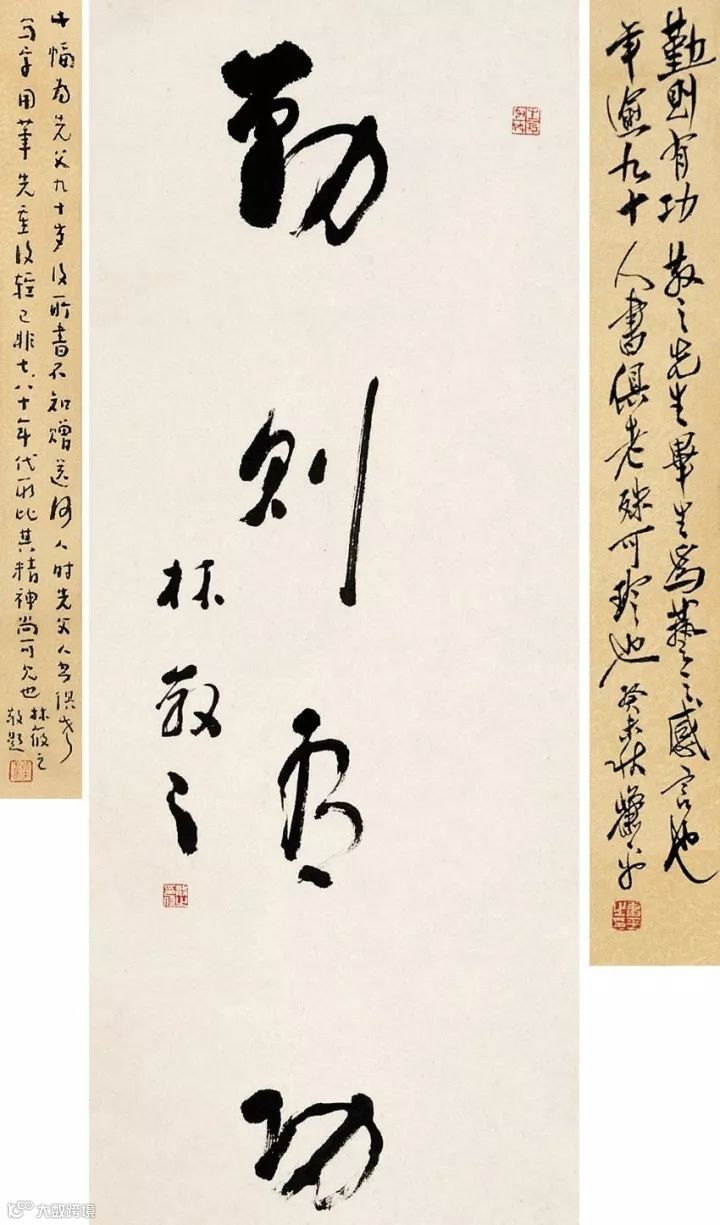 勤則有功 散之先生畢生爲藝之感言也
年逾九十人書俱老殊可珍也 癸未秋 蕭平
勤則有功
林散之
此幅为先父九十岁后所書不知赠送何人时先父人书俱老
写字用筆先重后轻已非七八十年代所比其精神尚可见也 林筱之
敬题
大数跨境